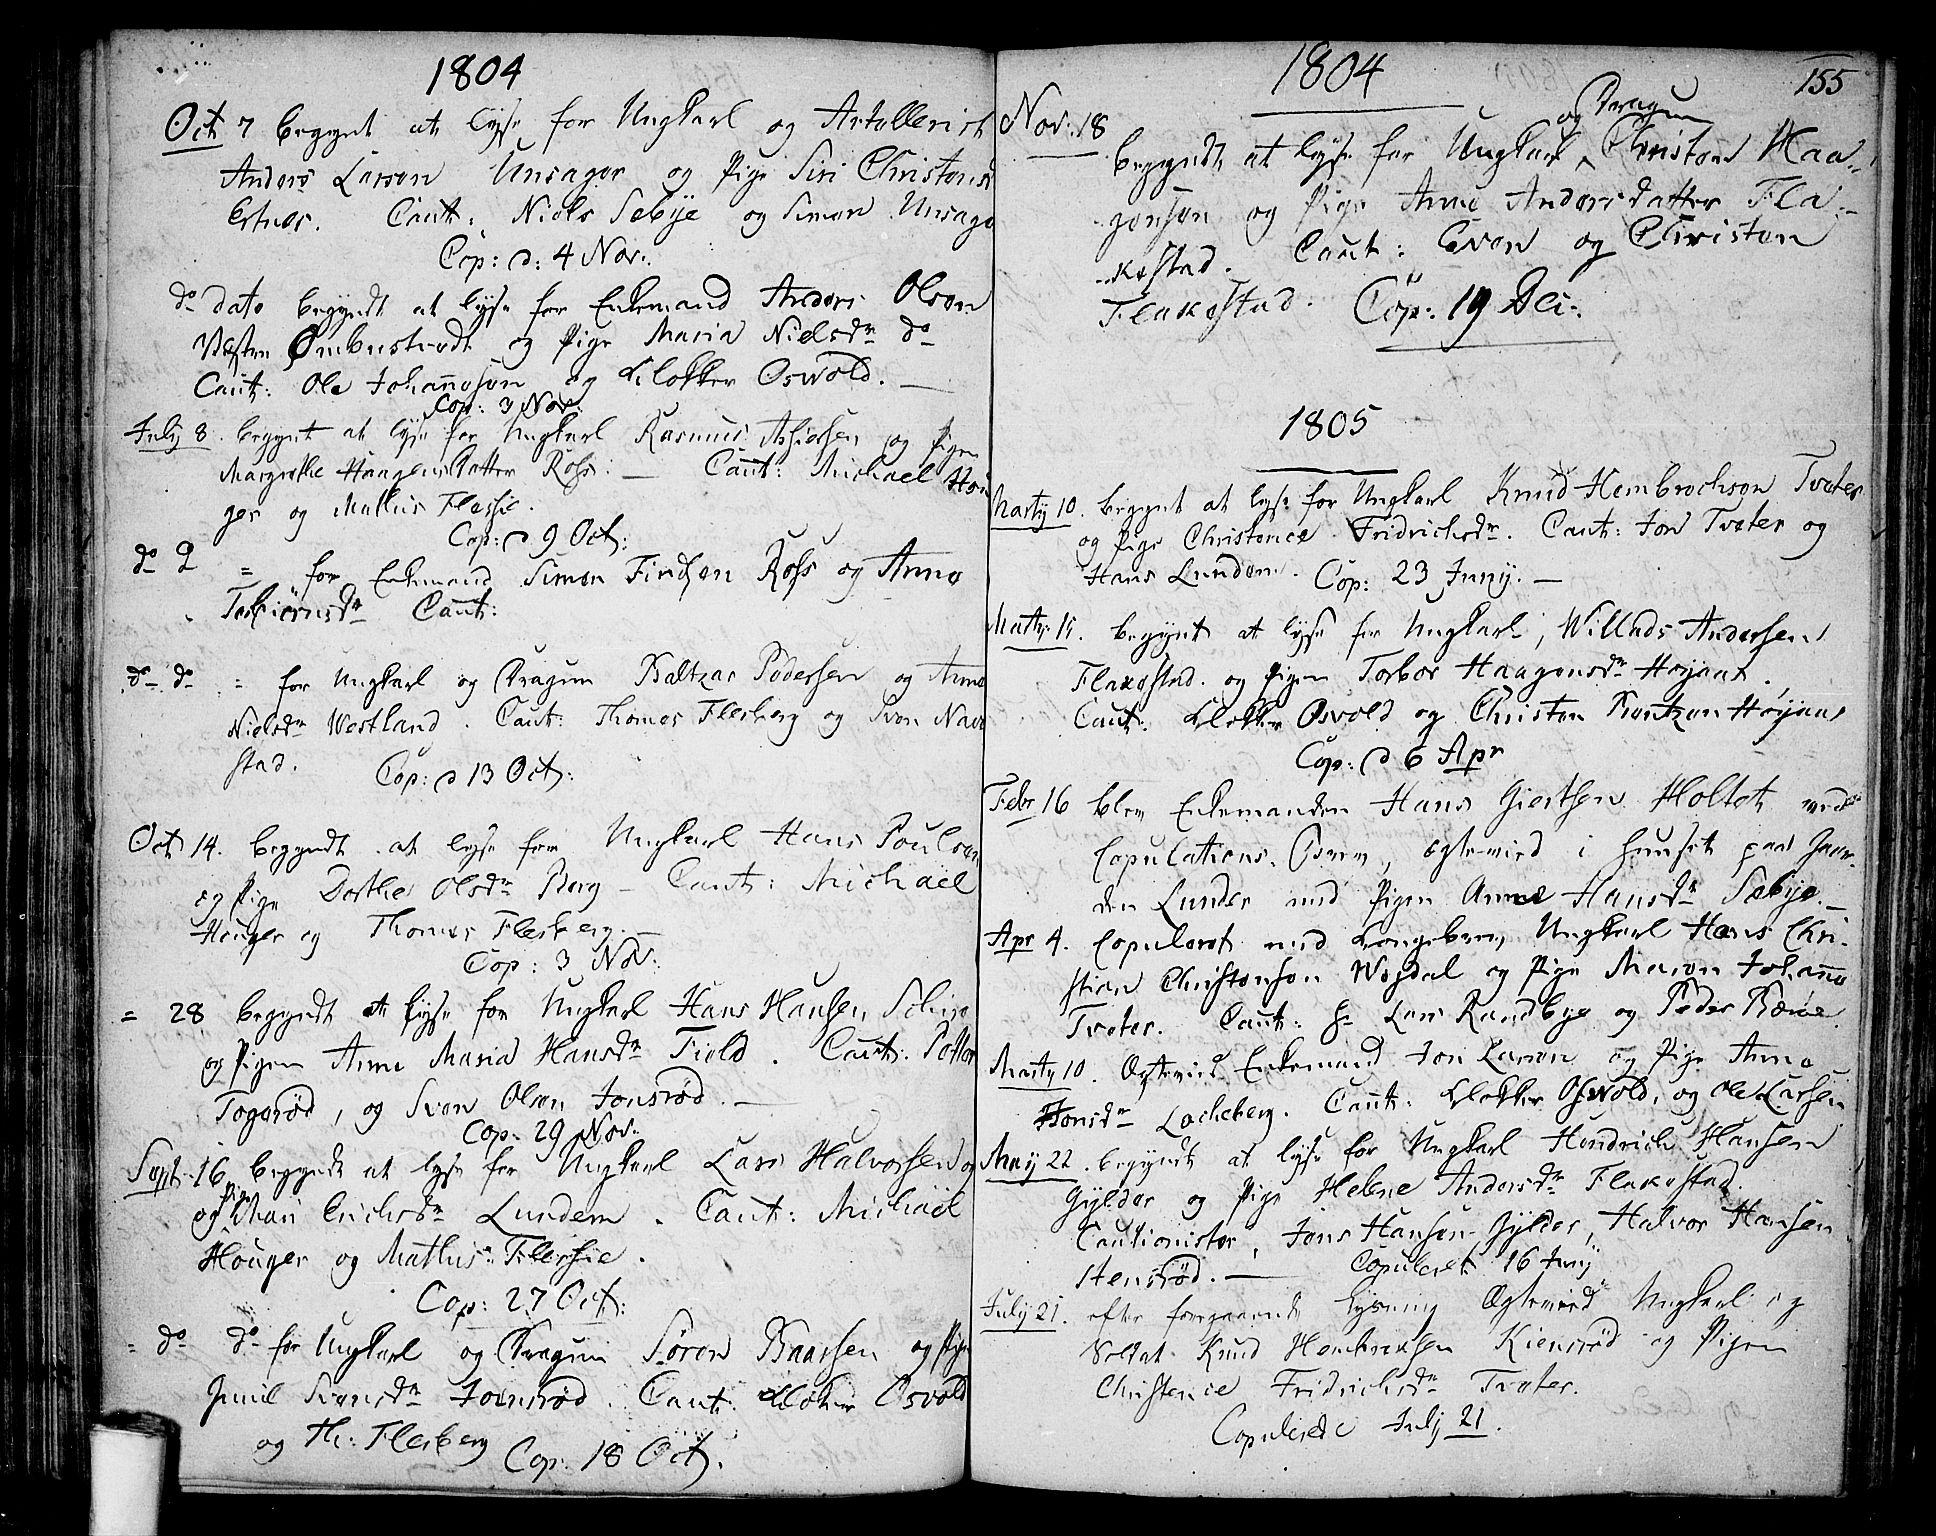 1804
Oct 7 begynt at lyse for Ungkarl og Artollerist
Anders Larsen Unsager og Pige Siri Christens
Caut: Niels Sebye og Simon Unsage
Cop: d: 4 Nov:
do dato begyndt at lyse for Enkemand Anders Olsen
Westen Ombustvedt og Pige Maria Nielsdr do
Caut: Ole Johannesen og Klokker Oswold.
Cop: 3 Nov:
July 8. begynt at lyse for Ungkarl Rasmus Assersen og Pigen
Margrethe Haagensdatter Rofs: Caut: Michael Hou
ger og Mathis Flessie.
Cop: d 9 Oct:
do 2 = for Enkemand Simen Findsen Rofs og Anne
Torbiörnsdr Caut:
do do = for Ungkarl og Dragun Baltzar Pedersen og Anne
Nielsdr Westland. Caut: Thomas Flesberg og Sven Nave
stad.
Cop: d 13 Oct:
Oct 14. begyndt at lyse for Ungkarl Hans Poulsen
og Pige Dorthe Olsdr Berg - Caut: Michael
Houger og Thomes Flesberg.
Cop: 3 Nov:
= 28 begyndt at lyse for Ungkarl Hans Hansen
og Pigen Anne Maria Hansdr Field. Caut: Petter
Togerød, og Sven Olsen Jonsrød.
Cop: 29 Nov:
Sept. 16 begyndt at lyse for Ungkarl Lars Halvorsen og
Pige Mari Erichsdr Lundem. Caut: Michael
Houger og Mathis Flessie.
Cop: 27 Oct:
= do do for Ungkarl og Dragun Søren Baarsen og Pige
Gunil Svensdr Jonsrød. Caut: Klokker Osvold
og Th: Flesberg Cop: 18 Oct.
1804
155
Nov: 18
og Dragun
begyndt at lyse for Ungkarl Christen Haa-
gensen og Pige Anne Andersdatter Fla-
kestad. Caut: Even og Christen
Flakestad. Cop: 19 Dec:
1805
Marty 10. begynt at lyse for Ungkarl Knud Hembrechsen Tveter
og Pige Christence Fridrichsdr. Caut: Jon Tveter og
Hans Lundem. Cop: 23 Juny.
Marty 15. begynt at lyse for Ungkarl, Willads Andersen
Flakestad. og Pigen Torbor Haagensdr Høyaas.
Caut: Klokker Osvold og Christen Bentzen Høyaas
Cop: d 6 Apr
Febr 16 blev Enkemanden Hans Giertsen Holtet med
Copulations-Brev, egteviet i huuset paa Gaar-
den Lunder med Pigen Anne Hansdr Sæbye.
Apr 4. Copuleret med Kongebrev, Ungkarl Hans Chri-
stian Christensen Wogdal og Pige Maren Johanne
Tveter. Caut: Hr Lars Randbye og Peder
Marty 10. Egteviet Enkemand Jon Larsen og Pige Anne
Jonsdr Lockeberg. Caut: Klokker Oswold, og Ole Larsen
May 22. begyndt at lyse for Ungkarl Hendrich Hansen
Gylder og Pige Helene Andersdr Flakestad.
Cautionister, Jens Hansen Gylder, Halvor Hansen
Stensrød. Copuleret 16 Juny
July 21. efter foregaaende Lysning Egteviet Ungkarl og
Soldat Knud Hembrechsen Kiensrød og Pigen
Christence Fridrichsdr Tveter.
Copulerede July 21.